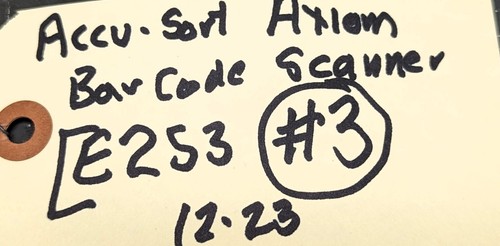 Accu-Sort Axiom
BarCode Scanner
[E253 #3
12-23